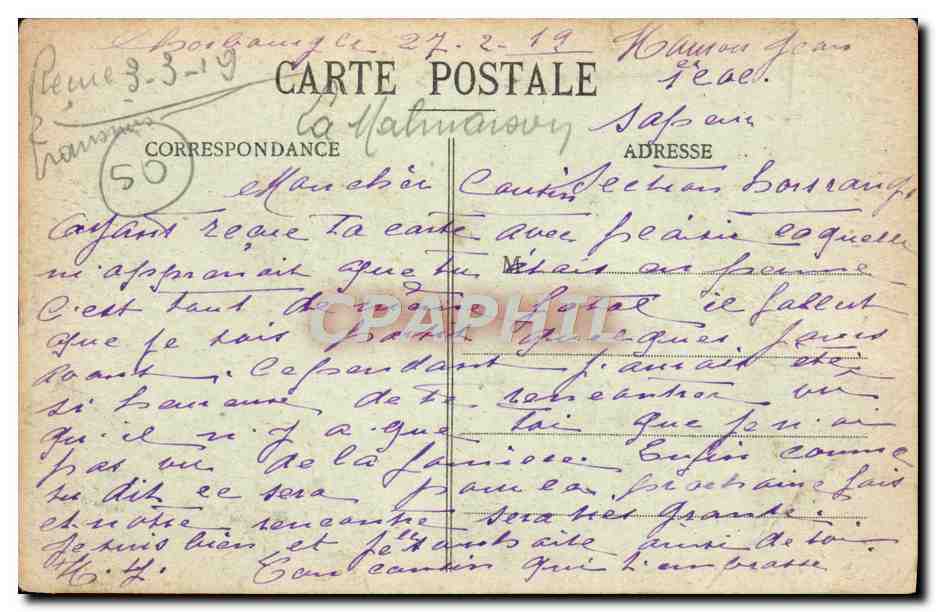 27-2-19 Jean
3-3-19
CARTE POSTALE
1er
La Malmaison
Sapeur
CORRESPONDANCE
ADRESSE
50
Mon cher Cousin Section
Ayant reçue ta carte avec plaisir laquelle
m'apprenait que tu étais en panne
M
c'est tout de même fatal il fallut
que je sois parti quelques jours
avant. Cependant j'aurais été
si heureux de te rencontrer vû
qu'il n'y a que toi que je n'ai
pas vu de la famille. Enfin comme
tu dit ce sera pour la prochaine fois
et notre rencontre sera très grande.
Je suis bien et je souhaite ainsi de toi
Ton cousin qui t'embrasse
CPAPHIL